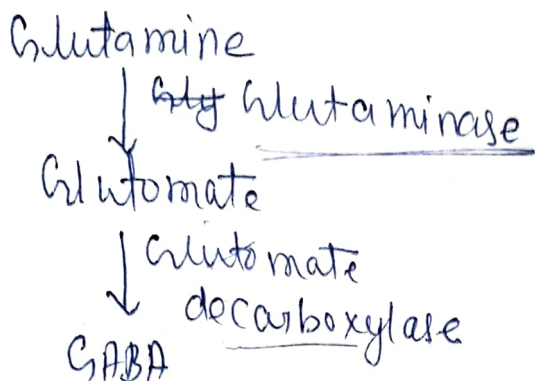 Glutamine
Gly Glutaminase
Glutomate
Glutomate
decarboxylase
GABA